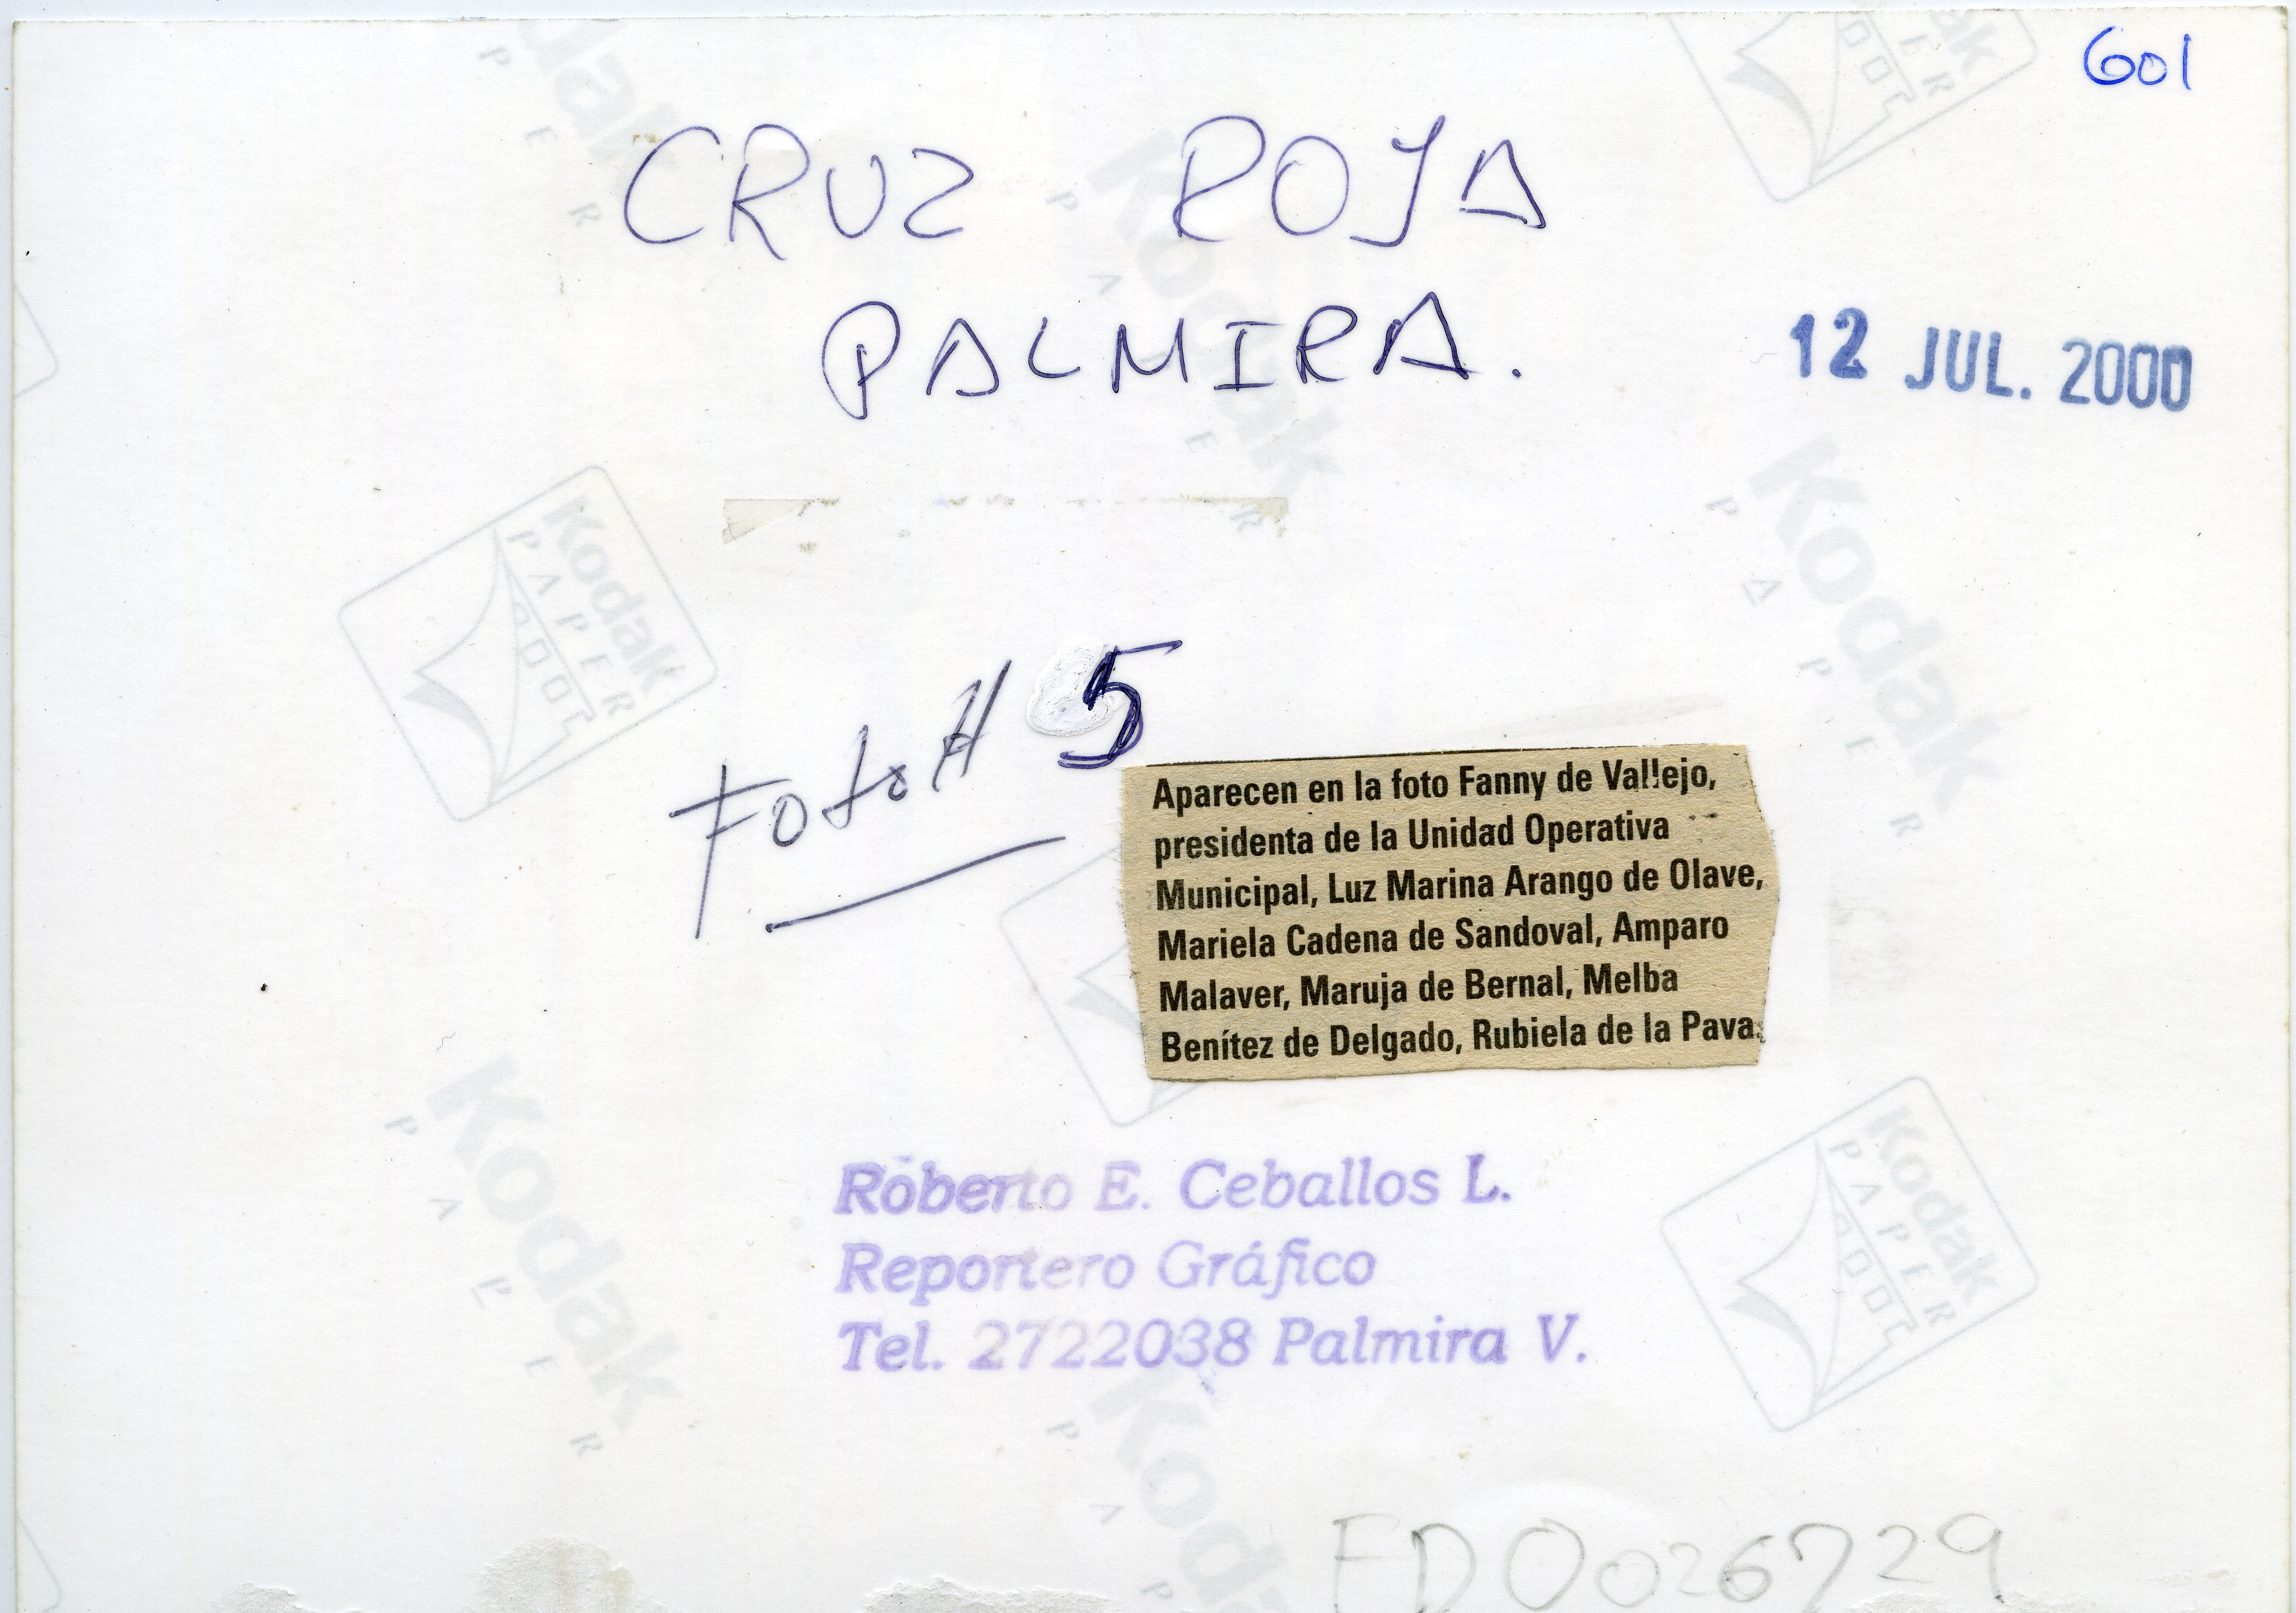 601
CRUZ ROJA
PALMIRA.
12 JUL. 2000
Foto # 5
Aparecen en la foto Fanny de Vallejo,
presidenta de la Unidad Operativa
Municipal, Luz Marina Arango de Olave,
Mariela Cadena de Sandoval, Amparo
Malaver, Maruja de Bernal, Melba
Benítez de Delgado, Rubiela de la Pava.
Roberto E. Ceballos L.
Reportero Gráfico
Tel. 2722038 Palmira V.
FD0026729
Kodak
PAPER